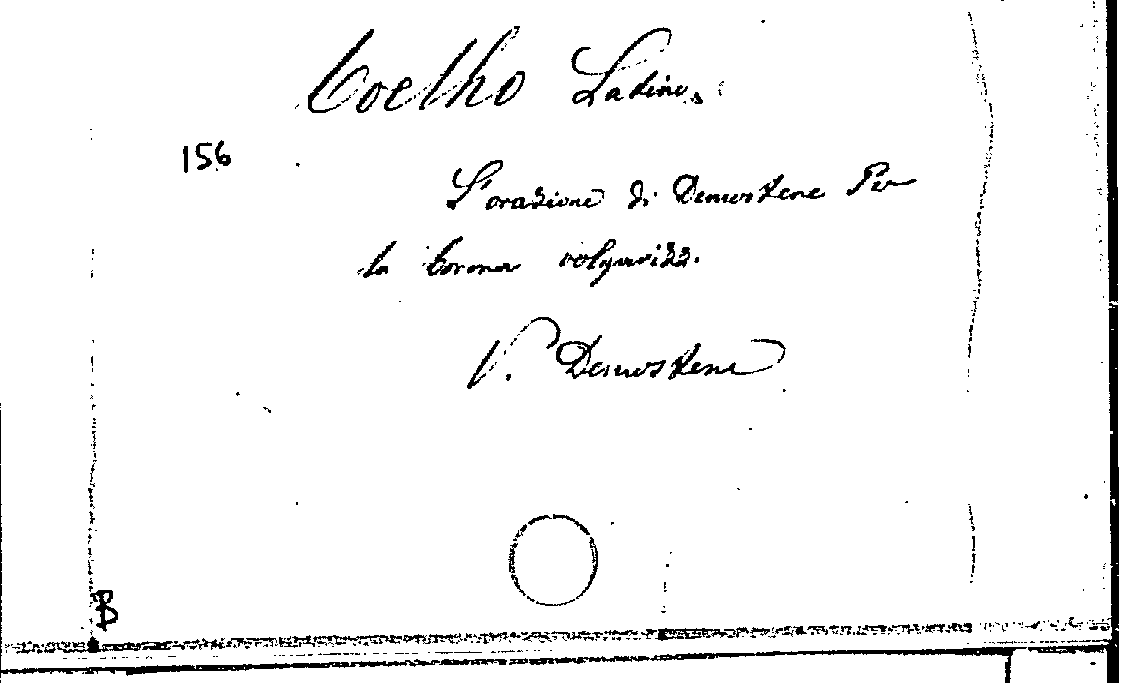 Coelho Latino.
156
L'orazione di Demostene Per
la Corona volgarizz.
V. Demostene
B